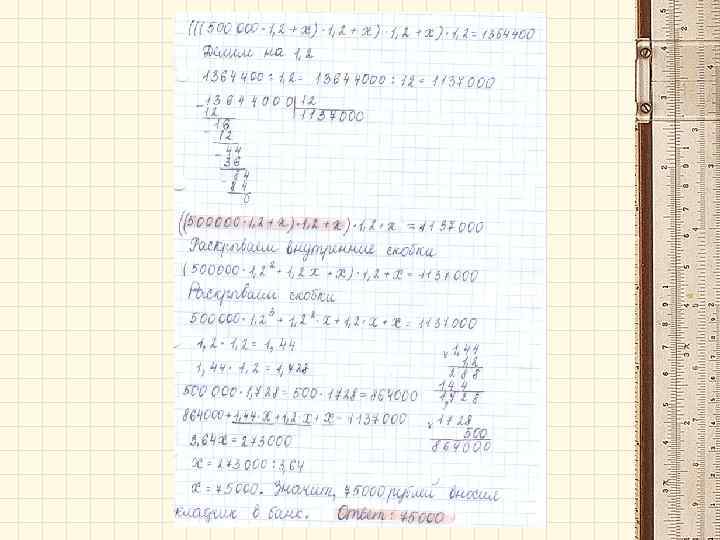 (((500 000 · 1,2 + x) · 1,2 + x) · 1,2 + x) · 1,2 = 1364400
Делим на 1,2
1364400 : 1,2 = 13644000 : 12 = 1137000
13644000 | 12
12 1137000
16
12
44
36
84
84
0
((500000 · 1,2 + x) · 1,2 + x) · 1,2 + x = 1137000
Раскрываем внутренние скобки
(500000 · 1,2² + 1,2x + x) · 1,2 + x = 1137000
Раскрываем скобки
500000 · 1,2³ + 1,2² · x + 1,2 · x + x = 1137000
1,2 · 1,2 = 1,44
1,44 · 1,2 = 1,728
1,44
1,2
288
144
1728
500 000 · 1,728 = 500 · 1728 = 864000
864000 + 1,44 · x + 1,2 · x + x = 1137000
1728
500
864000
3,64x = 273000
x = 273000 : 3,64
x = 75000. Значит, 75000 рублей вносил
кладчик в банк. Ответ: 75000